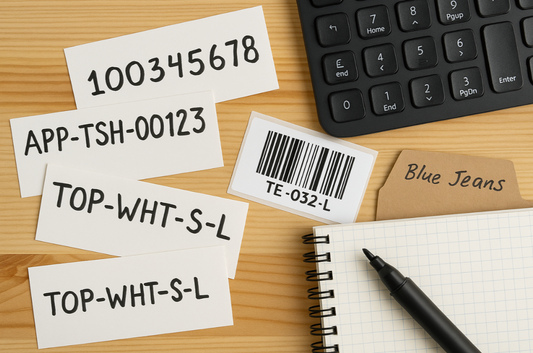 100345678
APP-TSH-00123
TOP-WHT-S-L
TOP-WHT-S-L
TE-032-L
Blue Jeans
7
Home
8
9
Pgup
E
end
4
5
6
0
1
End
2
3
PgDn
Enter